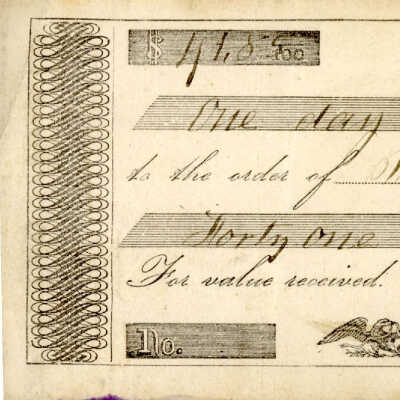 $ 41.55/100
One day
to the order of
Forty one
For value received.
No.